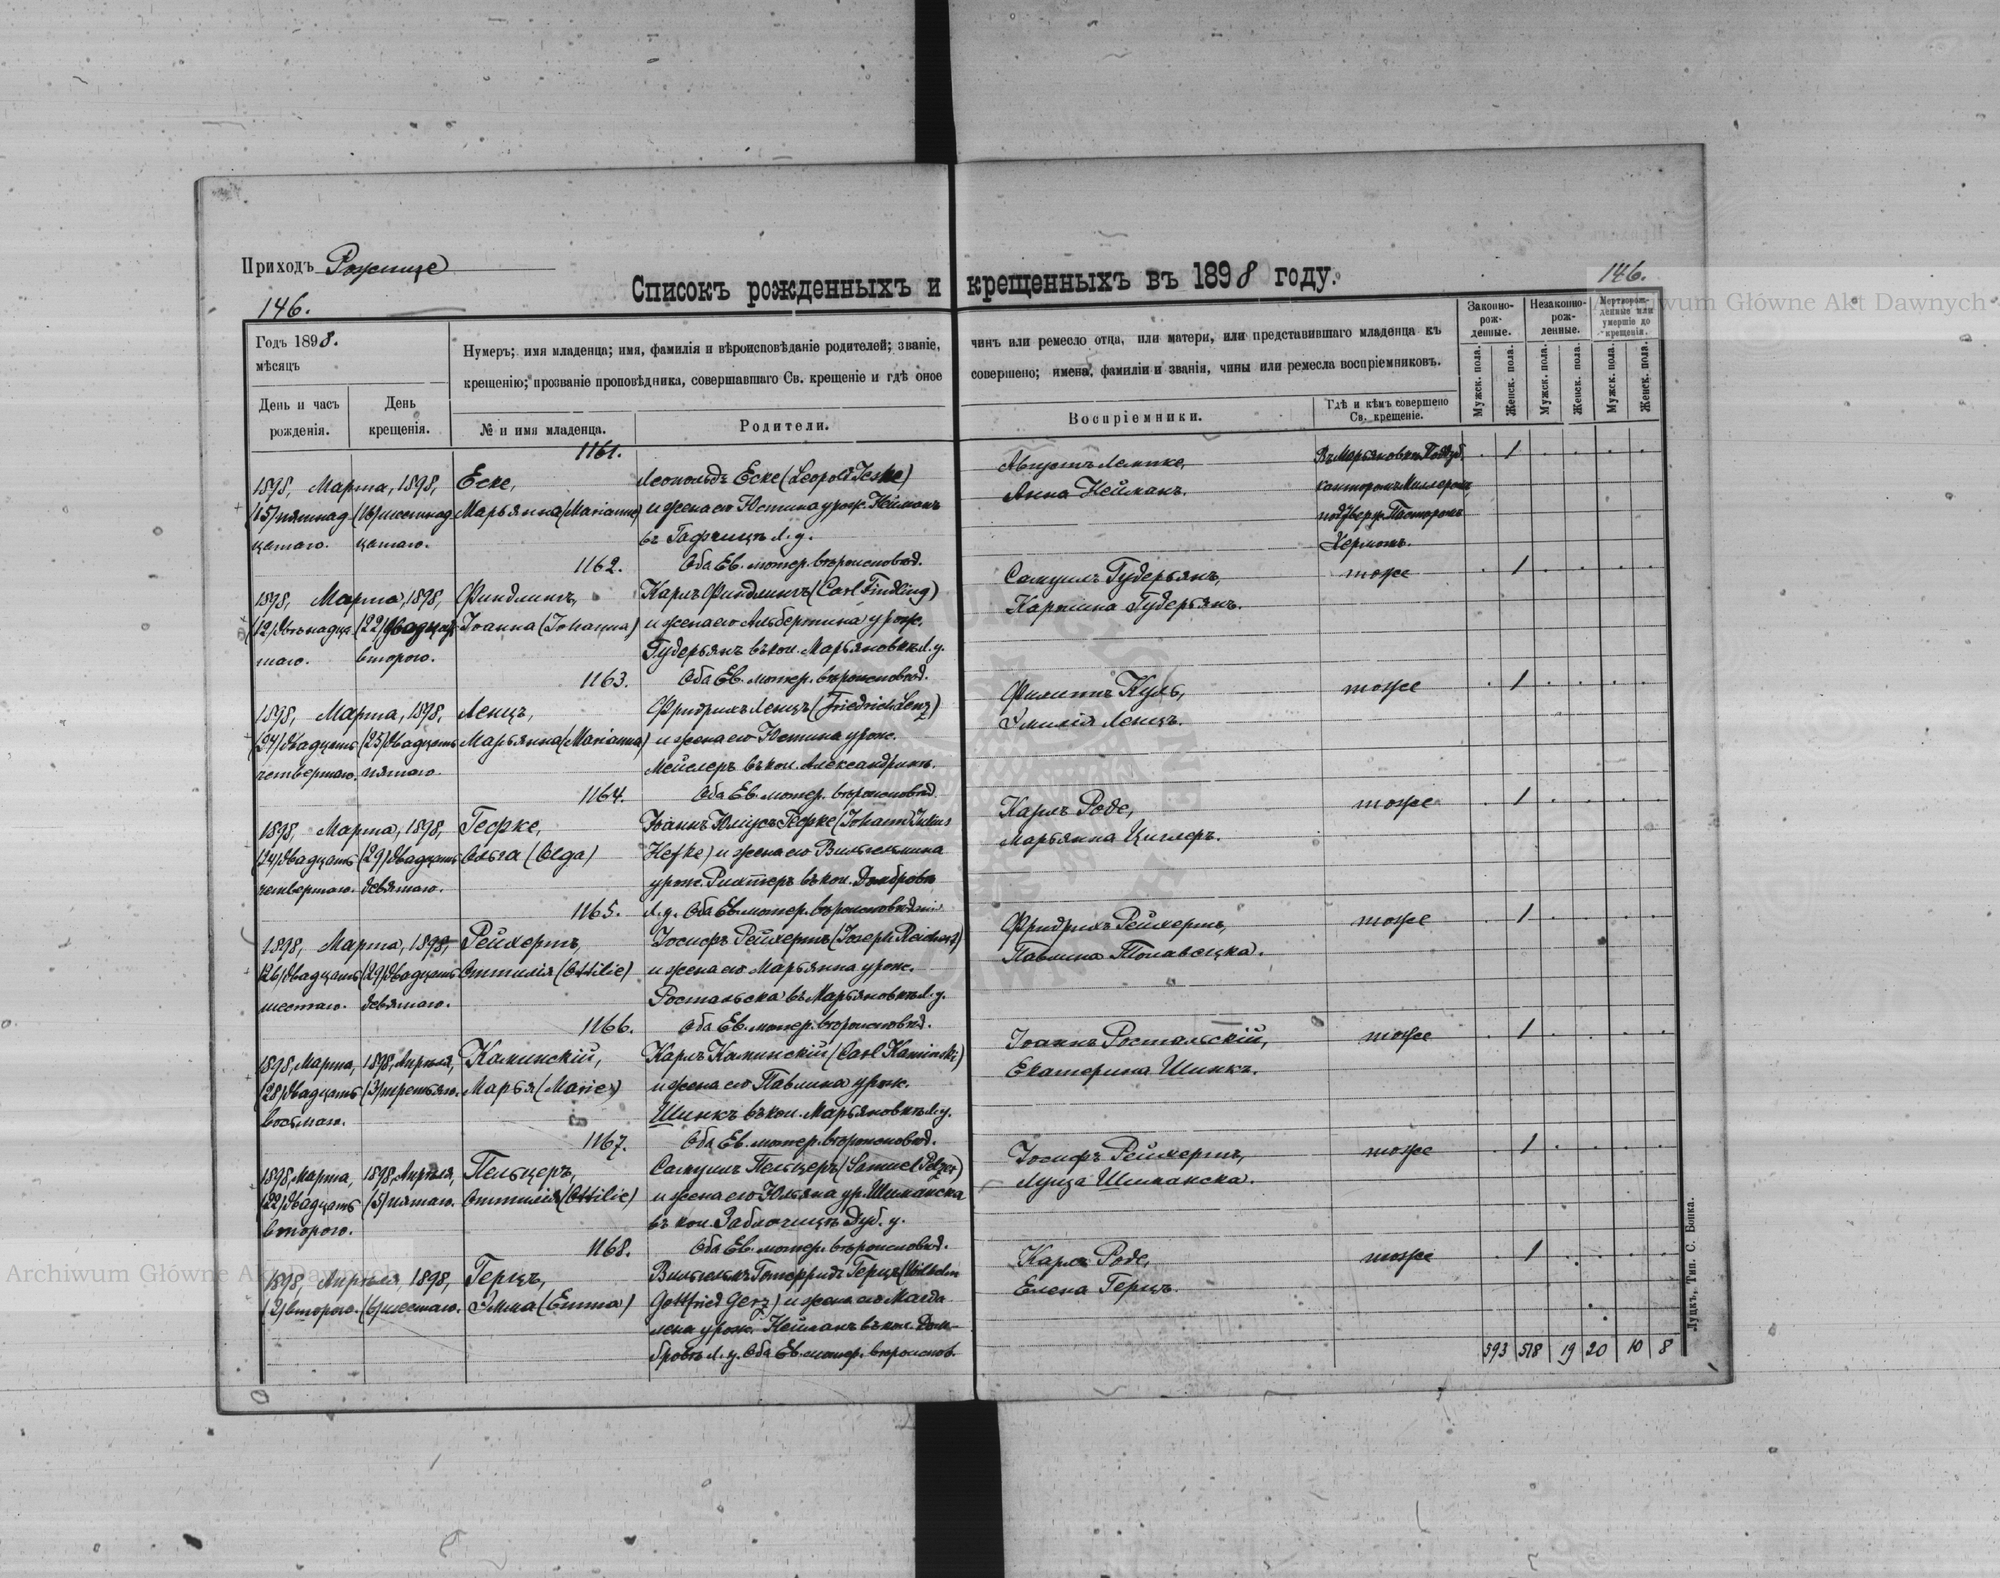 Приходъ Рожище
146.
Списокъ рожденныхъ и крещенныхъ въ 1898 году.
146.
Archiwum Główne Akt Dawnych
Годъ 1898.
мѣсяцъ
День и часъ рожденія.
День крещенія.
Нумеръ; имя младенца; имя, фамилія и вѣроисповѣданіе родителей; званіе,
крещенію; прозваніе проповѣдника, совершавшаго Св. крещеніе и гдѣ оное
№ и имя младенца.
Родители.
чинъ или ремесло отца, или матери, или представившаго младенца къ
совершено; имена, фамиліи и званія, чины или ремесла воспріемниковъ.
Воспріемники.
Гдѣ и кѣмъ совершено
Св. крещеніе.
Законно-
рож-
денные.
Незаконно-
рож-
денные.
Мертворож-
денные или
умершіе до
крещенія.
Мужск. пола.
Женск. пола.
Мужск. пола.
Женск. пола.
Мужск. пола.
Женск. пола.
1161.
1898, Марта, 1898,
(15) пятнад (16) шестнад
цатаго. цатаго.
Еске,
Марьянна (Marianne)
Леопольдъ Еске (Leopold Jeske)
и жена его Юстина урож. Нейманъ
въ Гафчицѣ Л. у.
Оба Ев. лютер. вѣроисповѣд.
Августъ Лемпке,
Анна Нейманъ.
канторомъ Миллеромъ,
Пасторомъ
Керномъ.
1
1162.
1898, Марта, 1898,
(12) двѣнадца (22) двадцать
таго. второго.
Финдлингъ,
Іоанна (Johanna)
Карлъ Финдлингъ (Carl Findling)
и жена его Альбертина урож.
Гудерьянъ въ кол. Марьяновкѣ Л. у.
Оба Ев. лютер. вѣроисповѣд.
Самуилъ Гудерьянъ,
Каролина Гудерьянъ.
тоже
1
1163.
1898, Марта, 1898,
(24) двадцать (25) двадцать
четвертаго. пятаго.
Ленцъ,
Марьянна (Marianna)
Фридрихъ Ленцъ (Friedrich Lenz)
и жена его Юстина урож.
Мейслеръ въ кол. Александринѣ.
Оба Ев. лютер. вѣроисповѣд.
Филиппъ Куль,
Эмилія Ленцъ.
тоже
1
1164.
1898, Марта, 1898,
(24) двадцать (29) двадцать
четвертаго. девятаго.
Гефке,
Ольга (Olga)
Іоаннъ Юліусъ Гефке (Johann Julius
Hefke) и жена его Вильгельмина
урож. Рихтеръ въ кол. Домбровѣ
Л. у. Оба Ев. лютер. вѣроисповѣданія
Карлъ Роде,
Марьянна Циглеръ.
тоже
1
1165.
1898, Марта, 1898,
(26) двадцать (29) двадцать
шестаго. девятаго.
Рейхертъ,
Оттилія (Ottilie)
Іосифъ Рейхертъ (Joseph Reichert)
и жена его Марьянна урож.
Ростальска въ Марьяновкѣ Л. у.
Оба Ев. лютер. вѣроисповѣд.
Фридрихъ Рейхертъ,
Павлина
тоже
1
1166.
1898, Марта, 1898, Апрѣля,
(28) двадцать (3) третьяго.
восьмаго.
Каминскій,
Марья (Marie)
Карлъ Каминскій (Carl Kaminski)
и жена его Павлина урож.
Шинкъ въ кол. Марьяновкѣ Л. у.
Оба Ев. лютер. вѣроисповѣд.
Іоаннъ Ростальскій,
Екатерина Шинкъ.
тоже
1
1167.
1898, Марта, 1898, Апрѣля,
(22) двадцать (5) пятаго.
второго.
Пельцеръ,
Оттилія (Ottilie)
Самуилъ Пельцеръ (Samuel Pelzer)
и жена его Юльяна ур. Шиманска
въ кол. Заблочицѣ Дуб. у.
Оба Ев. лютер. вѣроисповѣд.
Іосифъ Рейхертъ,
Луиза Шиманска.
тоже
1
1168.
1898, Апрѣля, 1898,
(2) второго. (6) шестаго.
Герцъ,
Эмма (Emma)
Вильгельмъ Готфридъ Герцъ (Wilhelm
Gottfried Gerz) и жена его Магда
лена урож. Нейманъ въ кол. Дом-
бровѣ Л. у. Оба Ев. лютер. вѣроисповѣд.
Карлъ Роде,
Елена Герцъ.
тоже
1
593 518 19 20 10 8
Луцкъ, Тип. С. Бонка.
Archiwum Główne Akt Dawnych